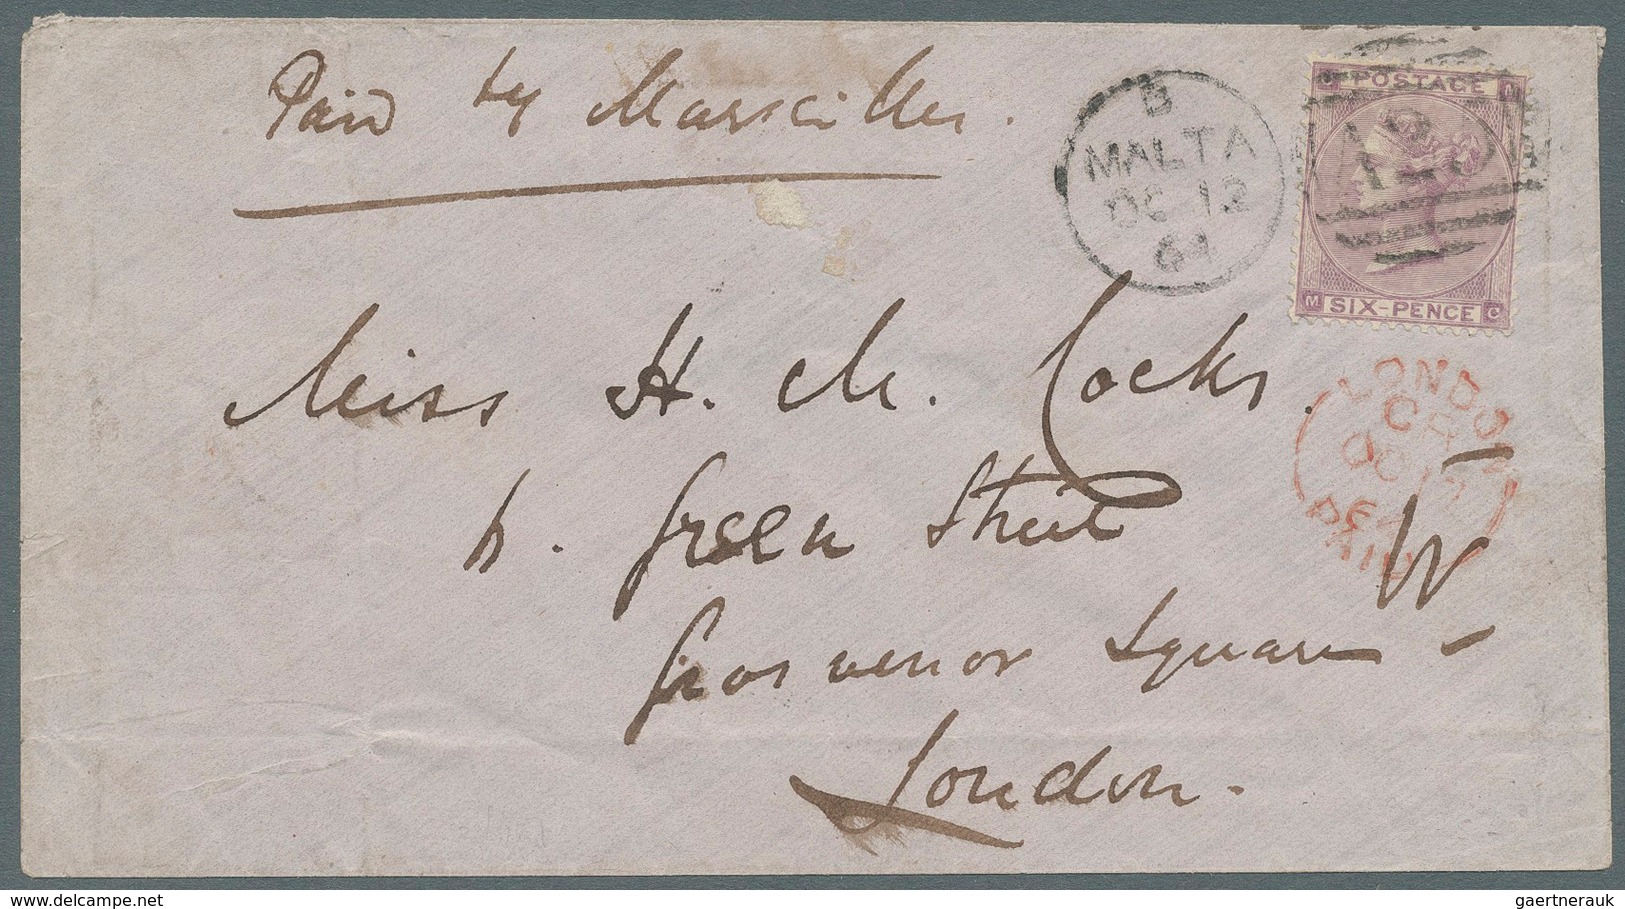 Paid by Marseilles.
B
MALTA
OC 12
64
C M
POSTAGE
SIX-PENCE
M C
Miss H. M. Cocks.
LONDON
OC 17
64
PAID
Green Street W
Grosvenor Square
London.
www.delcampe.net
gaertnerauk